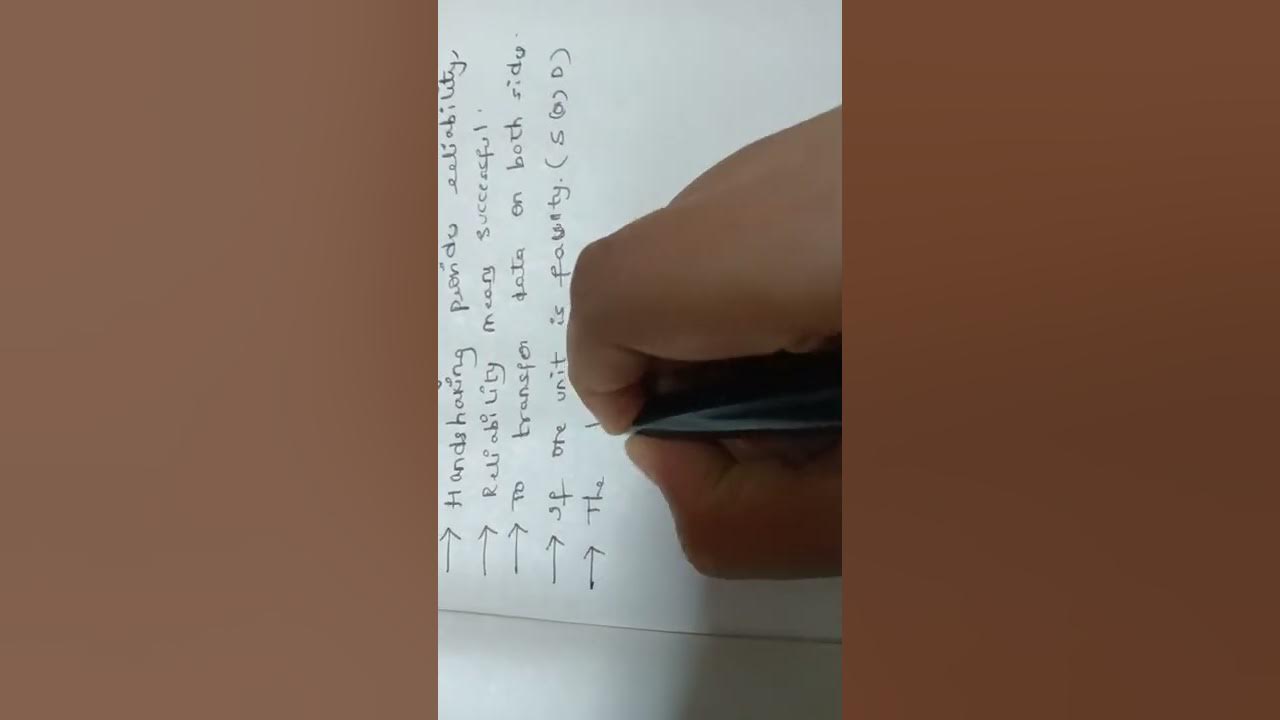 → Handshaking provide reliability,
→ Reliability means successful.
→ To transfer data on both side.
→ If one unit is faulty. (S (or) D)
→ The